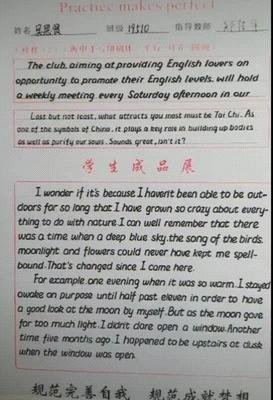 Practice makes perfect
姓名 班级 19510 指导教师
The club, aiming at providing English lovers an
opportunity to promote their English levels, will hold
a weekly meeting every Saturday afternoon in our
Last but not least, what attracts you most must be Tai Chi. As
one of the symbols of China, it plays a key role in building up bodies
as well as purify our souls. Sounds great, isn't it?
学生成品展
I wonder if it's because I haven't been able to be out-
doors for so long that I have grown so crazy about every-
thing to do with nature. I can well remember that there
was a time when a deep blue sky, the song of the birds,
moonlight and flowers could never have kept me spell-
bound. That's changed since I came here.
For example, one evening when it was so warm, I stayed
awake on purpose until half past eleven in order to have
a good look at the moon by myself. But as the moon gave
far too much light, I didn't dare open a window. Another
time five months ago, I happened to be upstairs at dusk
when the window was open.
规范完善自我 规范成就梦想